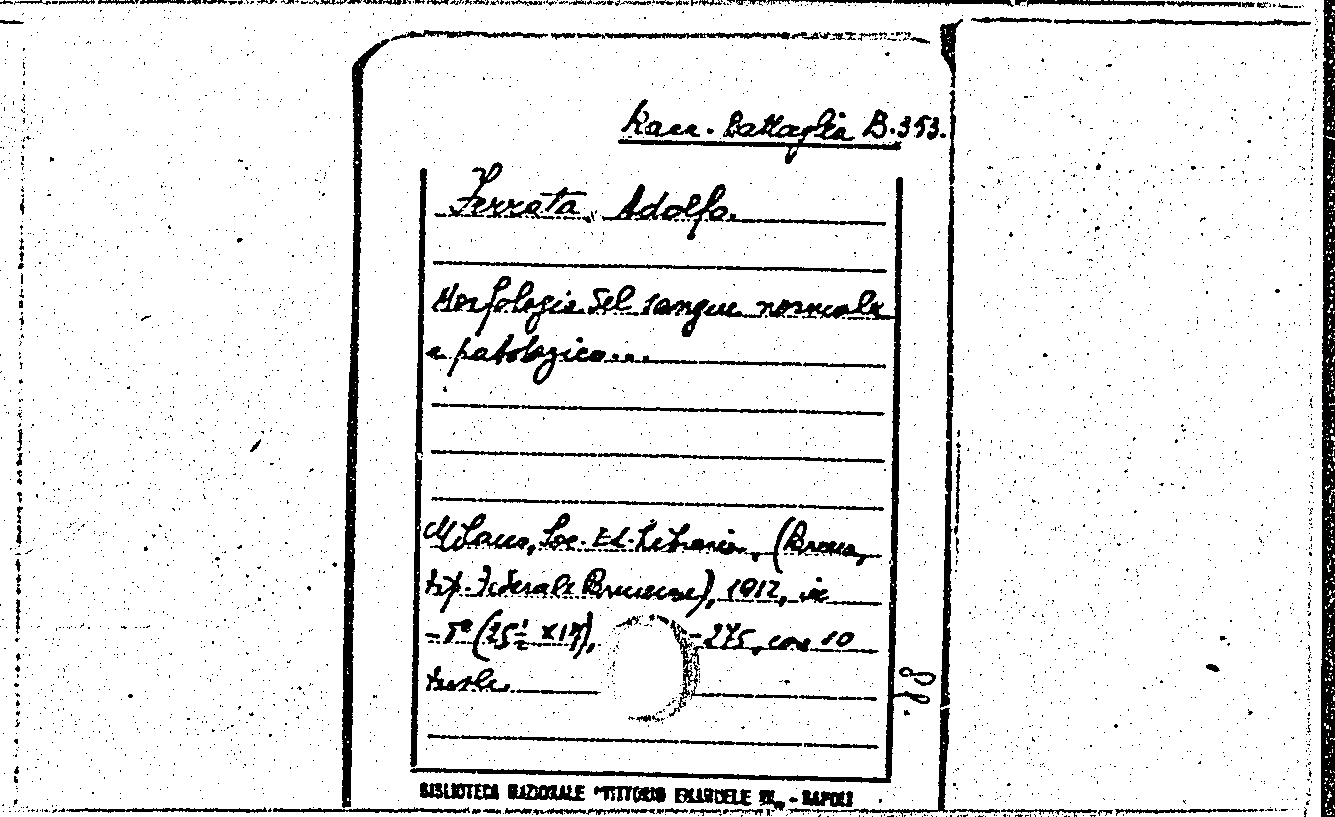 Racc. Battaglia B.353.
Ferrata, Adolfo.
Morfologia del sangue normale
e patologico...
Milano, Soc. Ed. Libraria, (Brema,
tip. Federale Brunense), 1912, in
-8° (25½ x 17), -275, con 10
tavole.
88.
BIBLIOTECA NAZIONALE "VITTORIO EMANUELE III" - NAPOLI